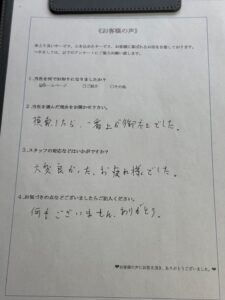 《お客様の声》
1.当社を何でお知りになりましたか?
☑ホームページ □ご紹介 □その他
2.当社を選んだ理由をお聞かせ下さい。
検索したら、一番上が御社でした。
3.スタッフの対応などはいかがですか?
大変良かった、お疲れ様でした。
4.お気づきの点などございましたらご記入ください。
何もございません、ありがとう。
♥お客様の声にお答え頂き、ありがとうございました。♥